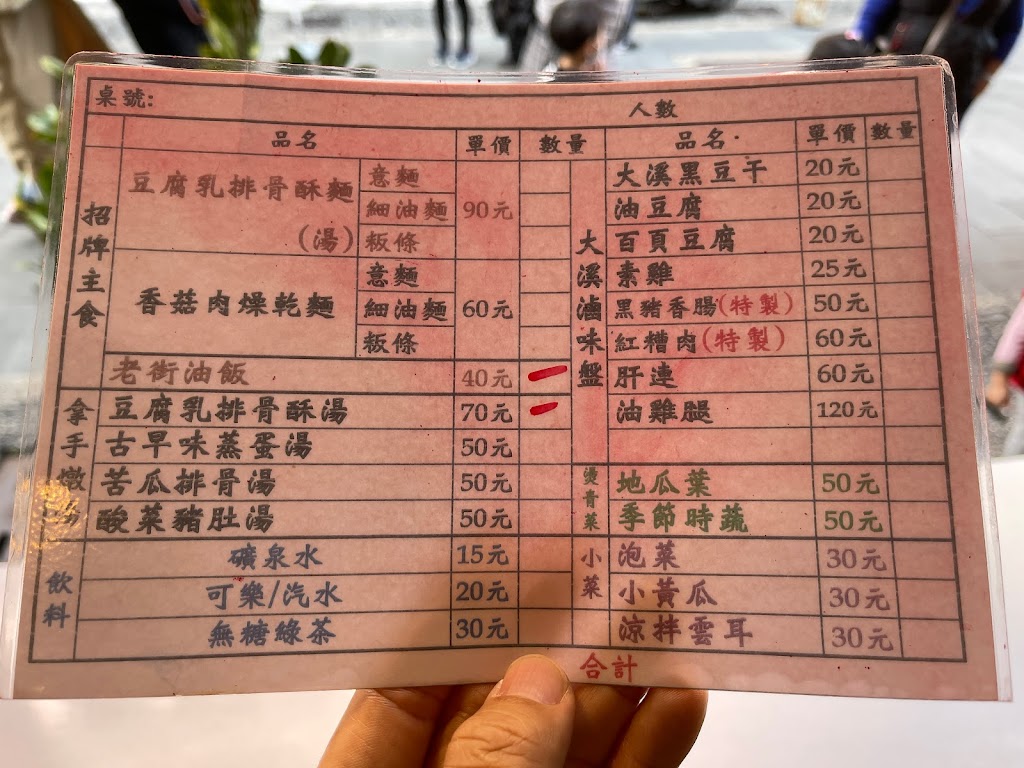 桌號:
人數
品名 單價 數量
招牌主食
豆腐乳排骨酥麵(湯) 意麵 細油麵 粄條 90元
香菇肉燥乾麵 意麵 細油麵 粄條 60元
老街油飯 40元
拿手燉
豆腐乳排骨酥湯 70元
古早味蒸蛋湯 50元
苦瓜排骨湯 50元
酸菜豬肚湯 50元
飲料
礦泉水 15元
可樂/汽水 20元
無糖綠茶 30元
品名 單價 數量
大溪滷味盤
大溪黑豆干 20元
油豆腐 20元
百頁豆腐 20元
素雞 25元
黑豬香腸(特製) 50元
紅糟肉(特製) 60元
肝連 60元
油雞腿 120元
燙青菜
地瓜葉 50元
季節時蔬 50元
小菜
泡菜 30元
小黃瓜 30元
涼拌雲耳 30元
合計